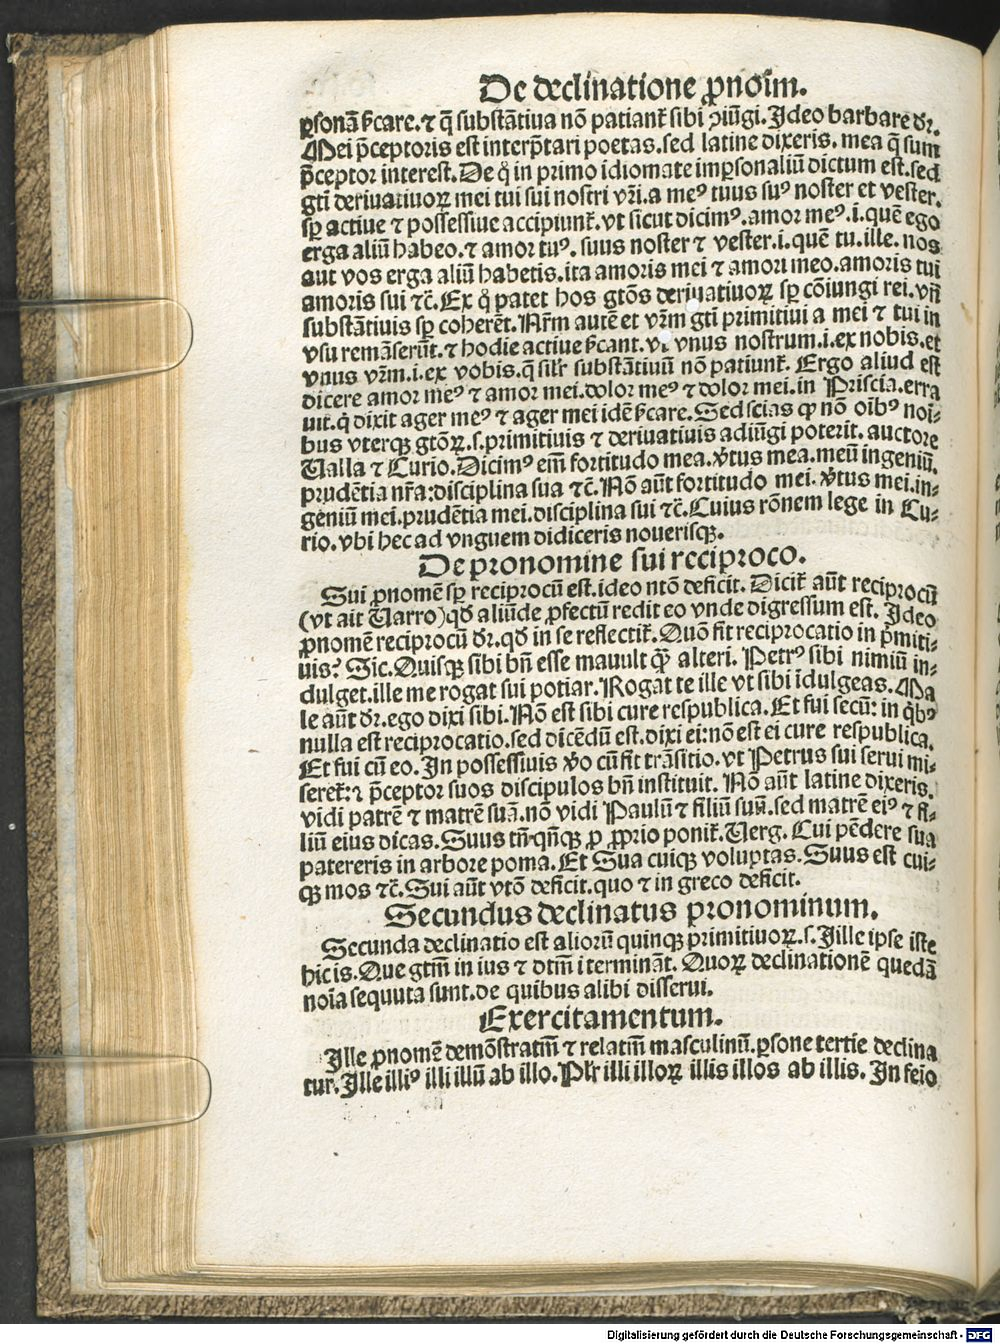 De declinatione ꝓnoīm.
ꝑsonā ſ̄care. ⁊ q̄ substātiua nō patiant᷑ sibi ꝯiūgi. Ideo barbare dr̄.
Mei p̄ceptoris est interp̄tari poetas. sed latine dixeris. mea q̄ sum
p̄ceptor interest. De qͦ in primo idiomate imꝑsonaliū dictum est. sed
gtī deriuatiuoꝝ mei tui sui nostri vr̄i. a meꝰ tuus suꝰ noster et vester.
sꝑ actiue ⁊ possessiue accipiunt᷑. vt sicut dicimꝰ. amor meꝰ. i. quē ego
erga aliū habeo. ⁊ amor tuꝰ. suus noster ⁊ vester. i. quē tu. ille. nos
aut vos erga aliū habetis. ita amoris mei ⁊ amori meo. amoris tui
amoris sui ⁊c̄. Ex qͦ patet hos gtōs deriuatiuoꝝ sꝑ cōiungi rei. vn̄
substātiuis sꝑ coherēt. Nr̄m autē et vr̄m gtī primitiui a mei ⁊ tui in
vsu remāserūt. ⁊ hodie actiue ſ̄cant. vt vnus nostrum. i. ex nobis. et
vnus vr̄m. i. ex vobis. q̄ silr̄ substātiuū nō patiunt᷑. Ergo aliud est
dicere amor meꝰ ⁊ amor mei. dolor meꝰ ⁊ dolor mei. in Priscia. erra
uit. qͥ dixit ager meꝰ ⁊ ager mei idē ſ̄care. Sed scias ꝙ nō oībꝰ noī-
bus vterqꝫ gtōꝝ. s. primitiuis ⁊ deriuatiuis adiūgi poterit. auctore
Valla ⁊ Curio. Dicimꝰ em̄ fortitudo mea. v̄tus mea. meū ingeniū.
prudētia nr̄a: disciplina sua ⁊c̄. Nō aūt fortitudo mei. v̄tus mei. in-
geniū mei. prudētia mei. disciplina sui ⁊c̄. Cuius rōnem lege in Cu-
rio. vbi hec ad vnguem didiceris nouerisqꝫ.
De pronomine sui reciproco.
Sui ꝓnomē sꝑ reciprocū est. ideo ntō deficit. Dicit᷑ aūt reciprocū
(vt ait Varro) qd̄ aliūde ꝓfectū redit eo vnde digressum est. Ideo
ꝓnomē reciprocū dr̄. qd̄ in se reflectit᷑. Quō fit reciprocatio in p̄miti-
uis? Sic. Quisqꝫ sibi bn̄ esse mauult qꝫ̄ alteri. Petrꝰ sibi nimiū in-
dulget. ille me rogat sui potiar. Rogat te ille vt sibi īdulgeas. Ma
le aūt dr̄. ego dixi sibi. Nō est sibi cure respublica. Et fui secū: in qͥbꝰ
nulla est reciprocatio. sed dicēdū est. dixi ei: nō est ei cure respublica.
Et fui cū eo. In possessiuis v̄o cū fit trāsitio. vt Petrus sui serui mi-
seret᷑: ⁊ p̄ceptor suos discipulos bn̄ instituit. Nō aūt latine dixeris.
vidi patrē ⁊ matrē suā. nō vidi Paulū ⁊ filiū suū. sed matrē eiꝰ ⁊ fi-
liū eius dicas. Suus tn̄ qn̄qꝫ ꝓ ꝓprio ponit᷑. Verg. Cui pēdere sua
patereris in arbore poma. Et Sua cuiqꝫ voluptas. Suus est cui-
qꝫ mos ⁊c̄. Sui aūt vtō deficit. quo ⁊ in greco deficit.
Secundus declinatus pronominum.
Secunda declinatio est aliorū quinqꝫ primitiuoꝝ. s. Iille ipse iste
hic is. Que gtm̄ in ius ⁊ dtm̄ i termināt. Quoꝝ declinationē quedā
noīa sequuta sunt. de quibus alibi disserui.
Exercitamentum.
Ille ꝓnomē demōstratm̄ ⁊ relatm̄ masculinū. ꝑsone tertie declina
tur. Ille illiꝰ illi illū ab illo. Plr̄ illi illoꝝ illis illos ab illis. In feīo
Digitalisierung gefördert durch die Deutsche Forschungsgemeinschaft - DFG